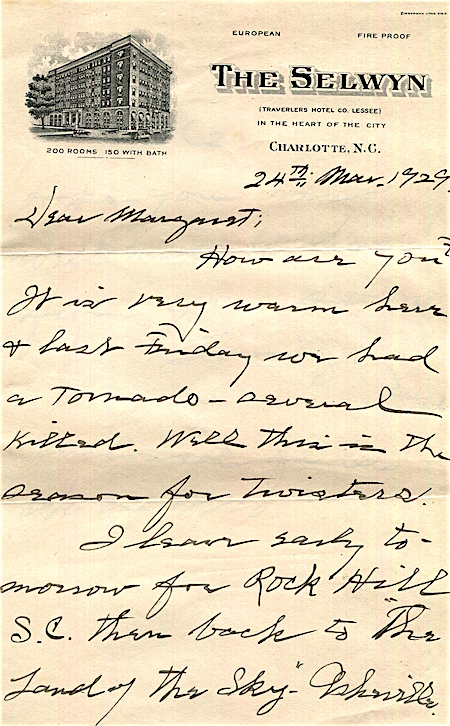 EUROPEAN FIRE PROOF
THE SELWYN
(TRAVERLERS HOTEL CO. LESSEE)
IN THE HEART OF THE CITY
200 ROOMS 150 WITH BATH
CHARLOTTE, N.C.
24th Mar. 1929.
Dear Margaret;
How are you?
It is very warm here
& last Friday we had
a Tornado - several
Killed. Well this is the
season for twisters.
I leave early to-
morrow for Rock Hill
S.C. then back to "The
Land of the Sky" - Asheville.